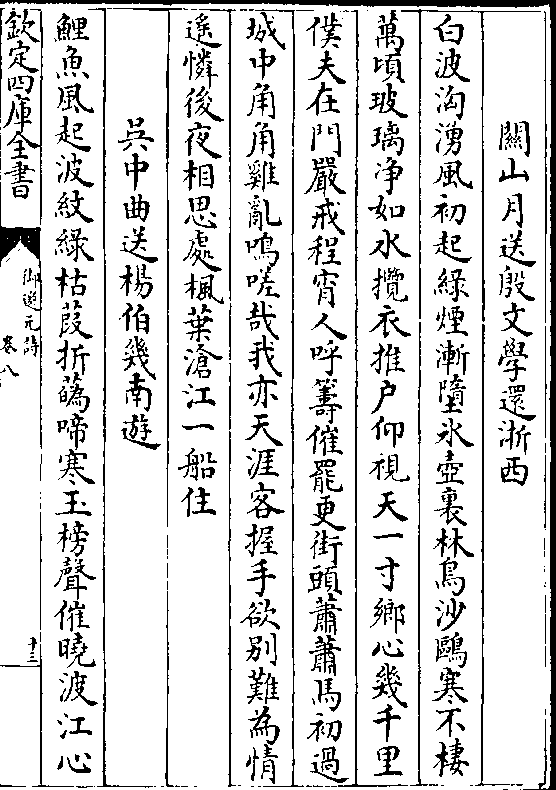 關山月送殷文學還浙西
白波沟湧風初起綠煙漸墮氷壺裏林烏沙鷗寒不棲
萬頃玻璃净如水攬衣推户仰視天一寸鄉心幾千里
僕夫在門嚴戒程宵人呼籌催罷更街頭蕭蕭馬初過
城中角角雞亂鳴嗟哉我亦天涯客握手欲别難為情
遥憐後夜相思處楓葉滄江一船住
吳中曲送楊伯幾南遊
鯉魚風起波紋綠枯葭折蒍啼寒玉榜聲催曉渡江心
欽定四庫全書
御選元詩
卷八
十三